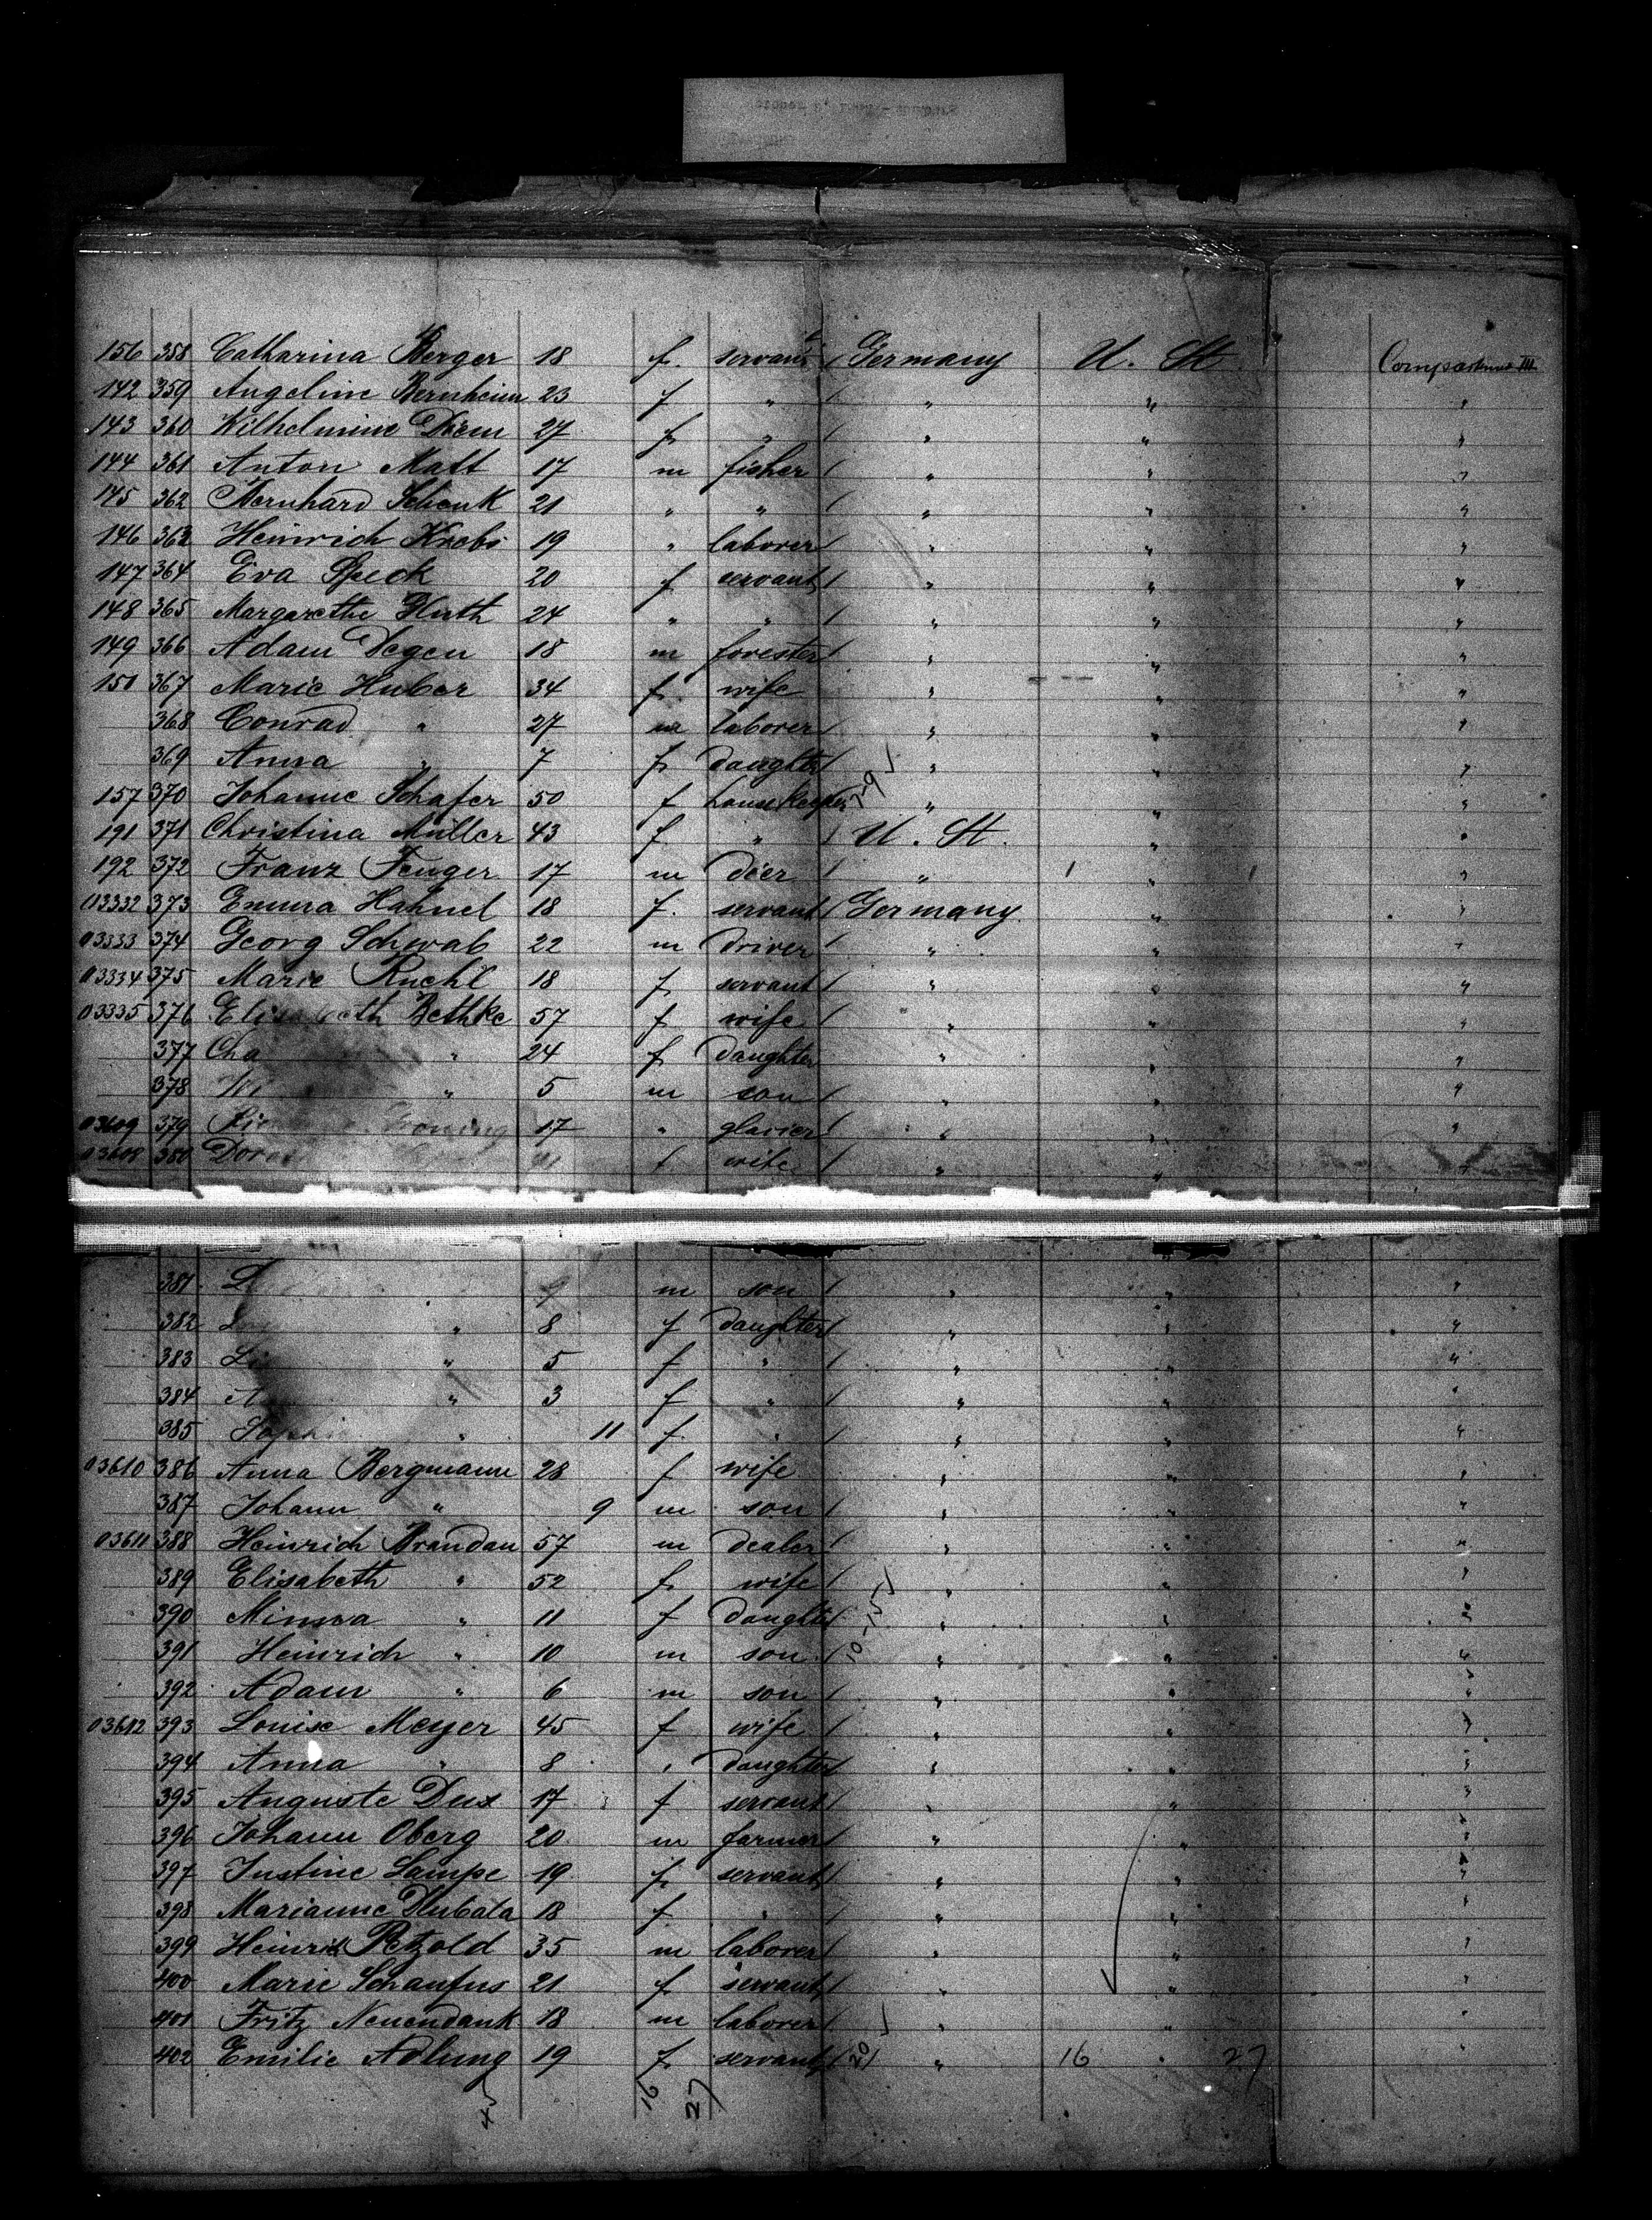 156 358 Catharina Berger 18 f. servant Germany U. St. Compartment III
142 359 Angeline Bernheim 23 f " " " "
143 360 Wilhelmine Diem 27 f " " " "
144 361 Anton Matt 17 m fisher " " "
145 362 Bernhard Schenk 21 " " " " "
146 363 Heinrich Krebs 19 " laborer " " "
147 364 Eva Speck 20 f servant " " "
148 365 Margarethe Huth 24 " " " " "
149 366 Adam Degen 18 m forester " " "
150 367 Marie Huber 34 f. wife " " "
368 Conrad " 27 m laborer " " "
369 Anna " 7 f daughter " " "
157 370 Johanne Schafer 50 f housekeeper " " "
191 371 Christina Müller 43 f " U. St. " "
192 372 Franz Fenger 17 m " " "
03332 373 Emma Hahnel 18 f. servant Germany " "
03333 374 Georg Schwab 22 m driver " " "
03334 375 Marie Ruehl 18 f servant " " "
03335 376 Elisabeth Bethke 57 f wife " " "
377 Cha " 24 f daughter " " "
378 " 5 m son " " "
03609 379 17 " glacier " " "
03608 380 Dor f wife " " "
381 L m son " " "
382 " 8 f daughter " " "
383 " 5 f " " " "
384 " 3 f " " " "
385 Sophi " 11 f " " " "
03610 386 Anna Bergmann 28 f wife " " "
387 Johann " 9 m son " " "
03611 388 Heinrich Brandau 57 m dealer " " "
389 Elisabeth " 52 f wife " " "
390 Minna " 11 f daughter " " "
391 Heinrich " 10 m son " " "
392 Adam " 6 m son " " "
03612 393 Louise Meyer 45 f wife " " "
394 Anna " 8 " daughter " " "
395 Auguste Dux 17 f servant " " "
396 Johann Oberg 20 m farmer " " "
397 Justine Lampe 19 f servant " " "
398 Marianne Hubata 18 f " " " "
399 Heinrich Petzold 35 m laborer " " "
400 Marie Schaufus 21 f servant " " "
401 Fritz Neuendank 18 m laborer " " "
402 Emilie Adlung 19 f servant 20 " 16 " 27 "
45 16 27